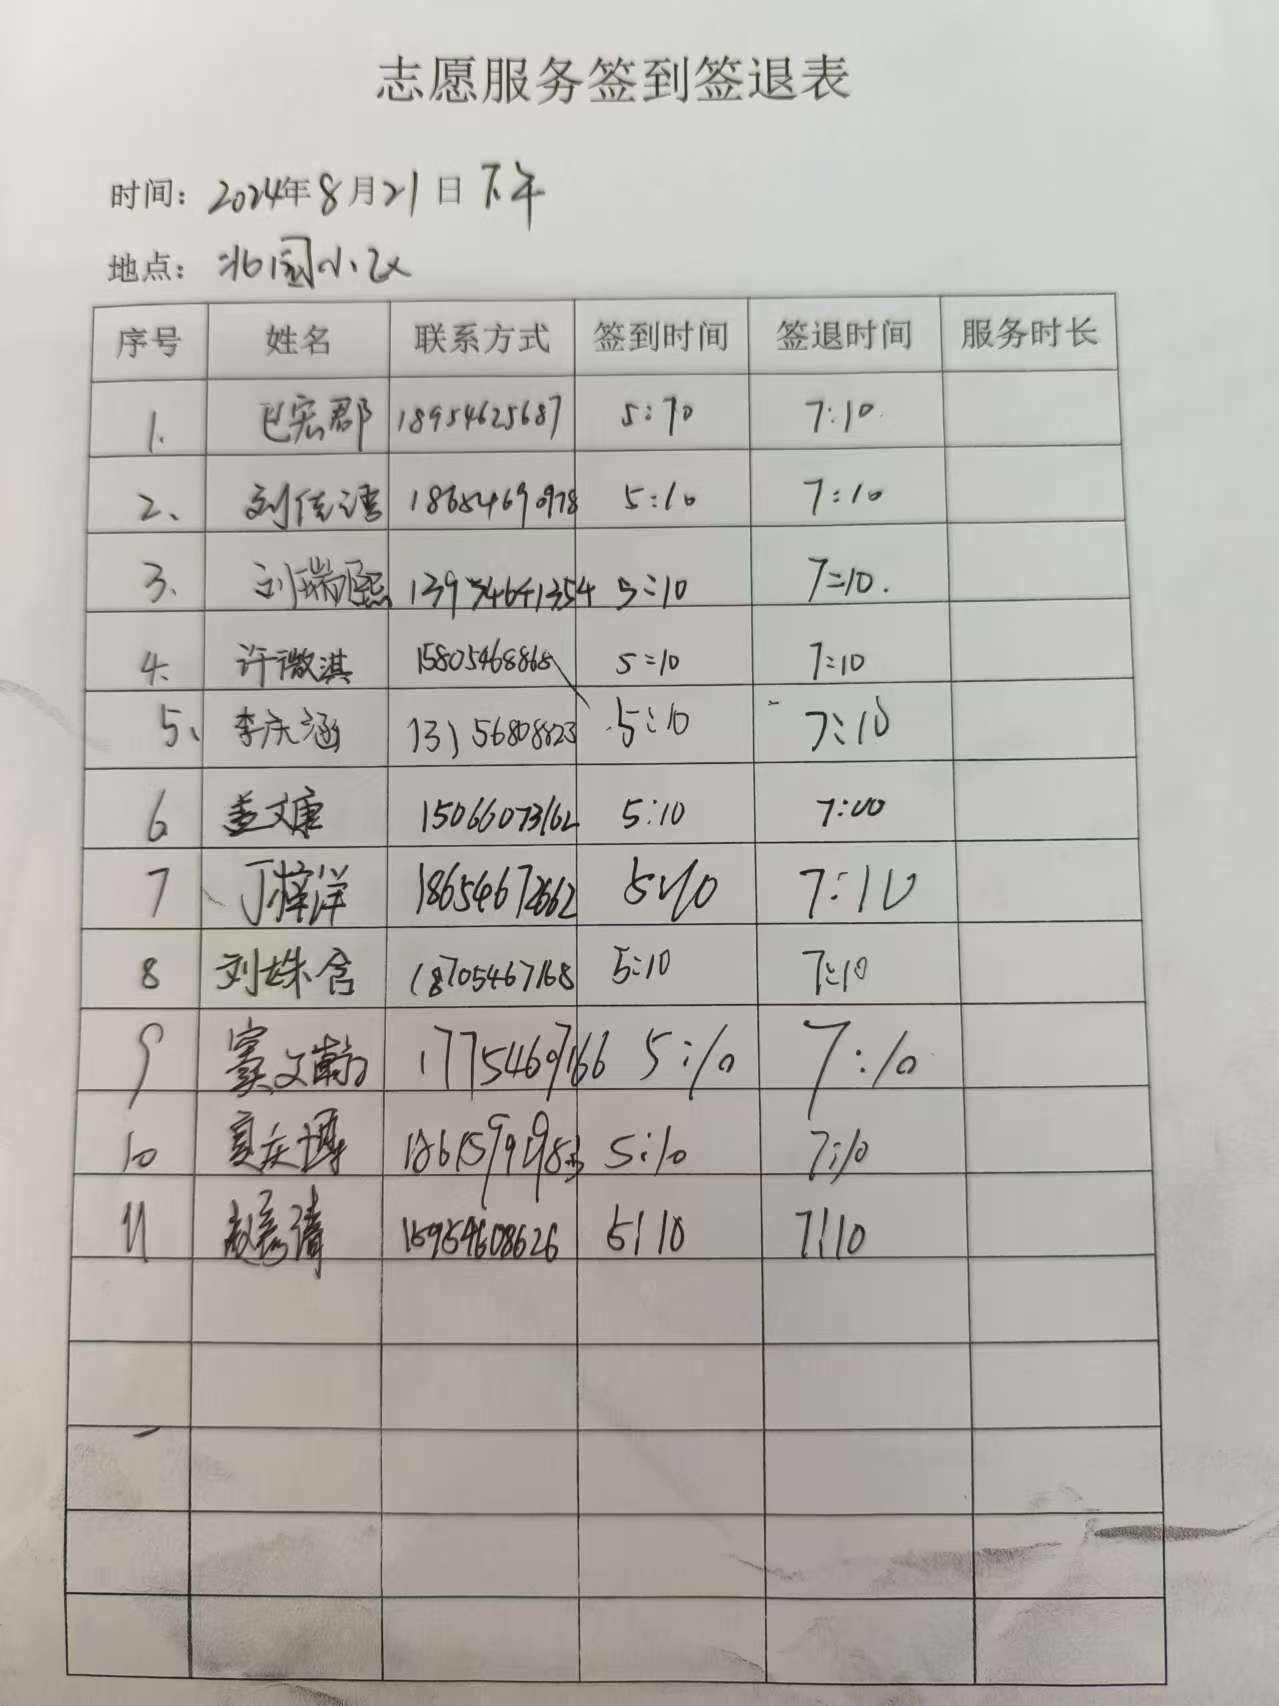 志愿服务签到签退表
时间：2024年8月21日下午
地点：北园小区
序号 姓名 联系方式 签到时间 签退时间 服务时长
1. 巴宏郡 18954625687 5:10 7:10
2、 刘佳 18654690978 5:10 7:10
3、 刘瑞熙 13954641354 5:10 7:10.
4. 许微淇 15805468868 5:10 7:10
5、 李庆涵 13156808823 5:10 7:10
6 盖文康 15066073162 5:10 7:00
7 丁梓洋 18654672662 5:10 7:10
8 刘姝含 18705467168 5:10 7:10
9 窦文瀚 17754697166 5:10 7:10
10 庆博 5:10 7:10
11 赵 15954608626 5:10 7:10